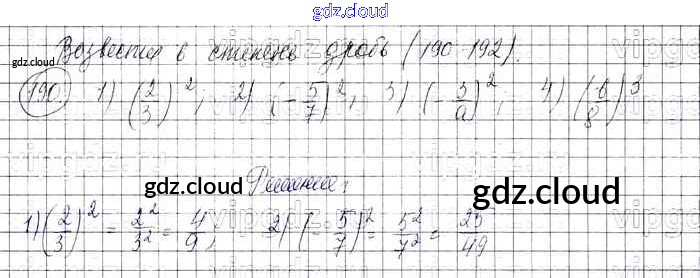 gdz.cloud
Возвести в степень дробь (190-192).
gdz.cloud
190 1) (2/3)², 2) (-5/7)², 3) (-3/a)², 4) (b/8)³
gdz.cloud gdz.cloud
Решение:
1) (2/3)² = 2²/3² = 4/9, 2) (-5/7)² = 5²/7² = 25/49